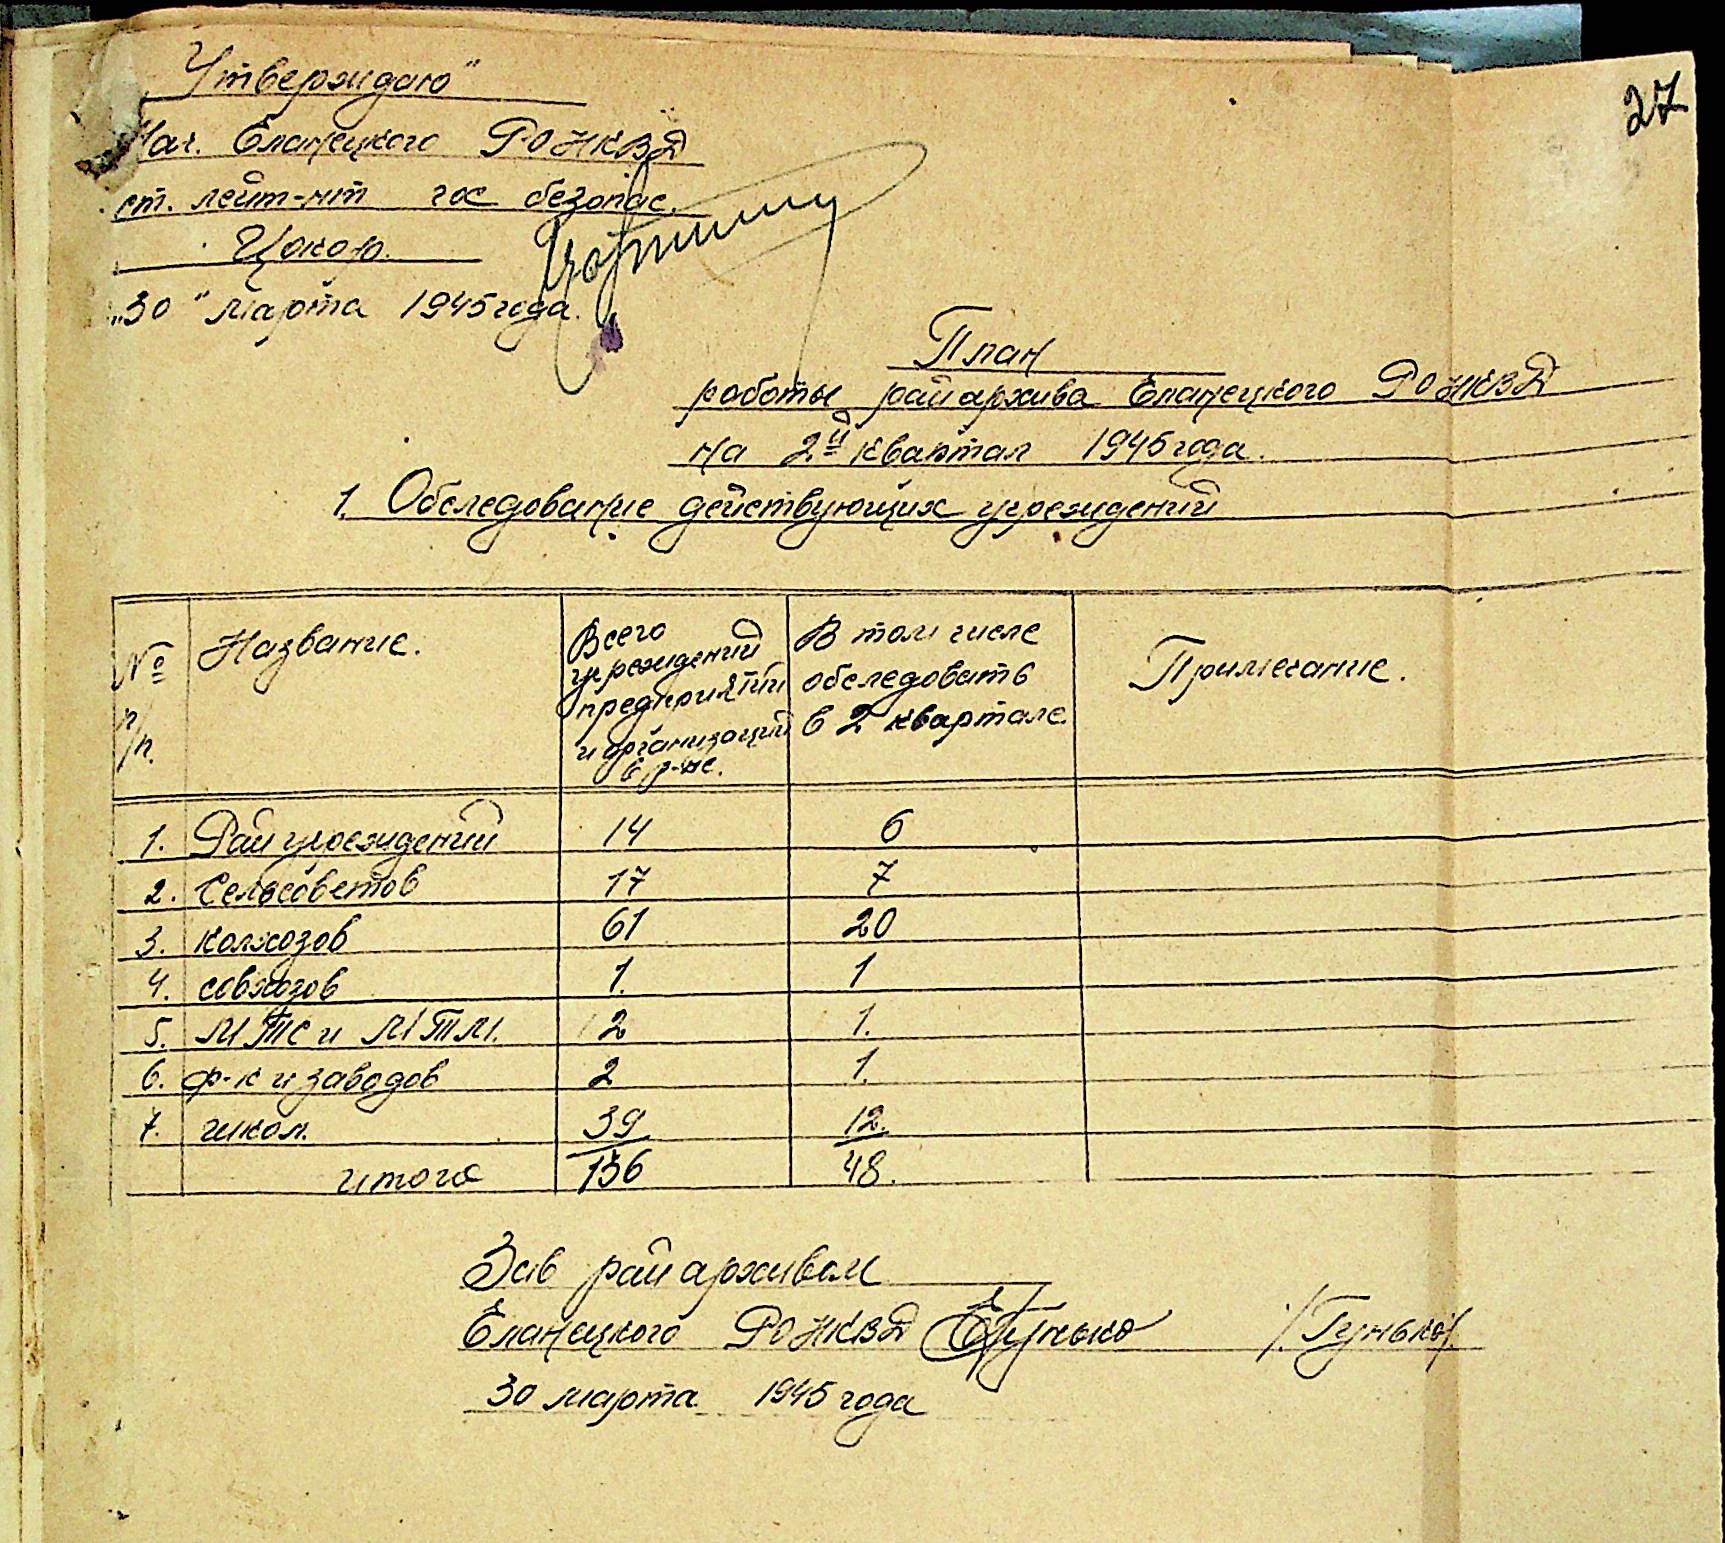 27
„Утверждаю"
Нач. Еланецкого РО НКВД
ст. лейт-нт гос безопас.
„30" марта 1945 года.
План
работы райархива Еланецкого РО НКВД
на 2й квартал 1945 года.
1. Обследование действующих учреждений
№ п/п. Название. Всего учреждений предприятий и организаций в р-не. В том числе обследовать в 2 квартале. Примечание.
1. Рай учреждений 14 6
2. Сельсоветов 17 7
3. колхозов 61 20
4. совхозов 1. 1
5. МТС и МТМ. 2 1.
6. ф-к и заводов 2 1.
7. школ. 39 12.
итого 136 48.
Зав райархивом
Еланецкого РО НКВД Гунько /Гунько/.
30 марта 1945 года